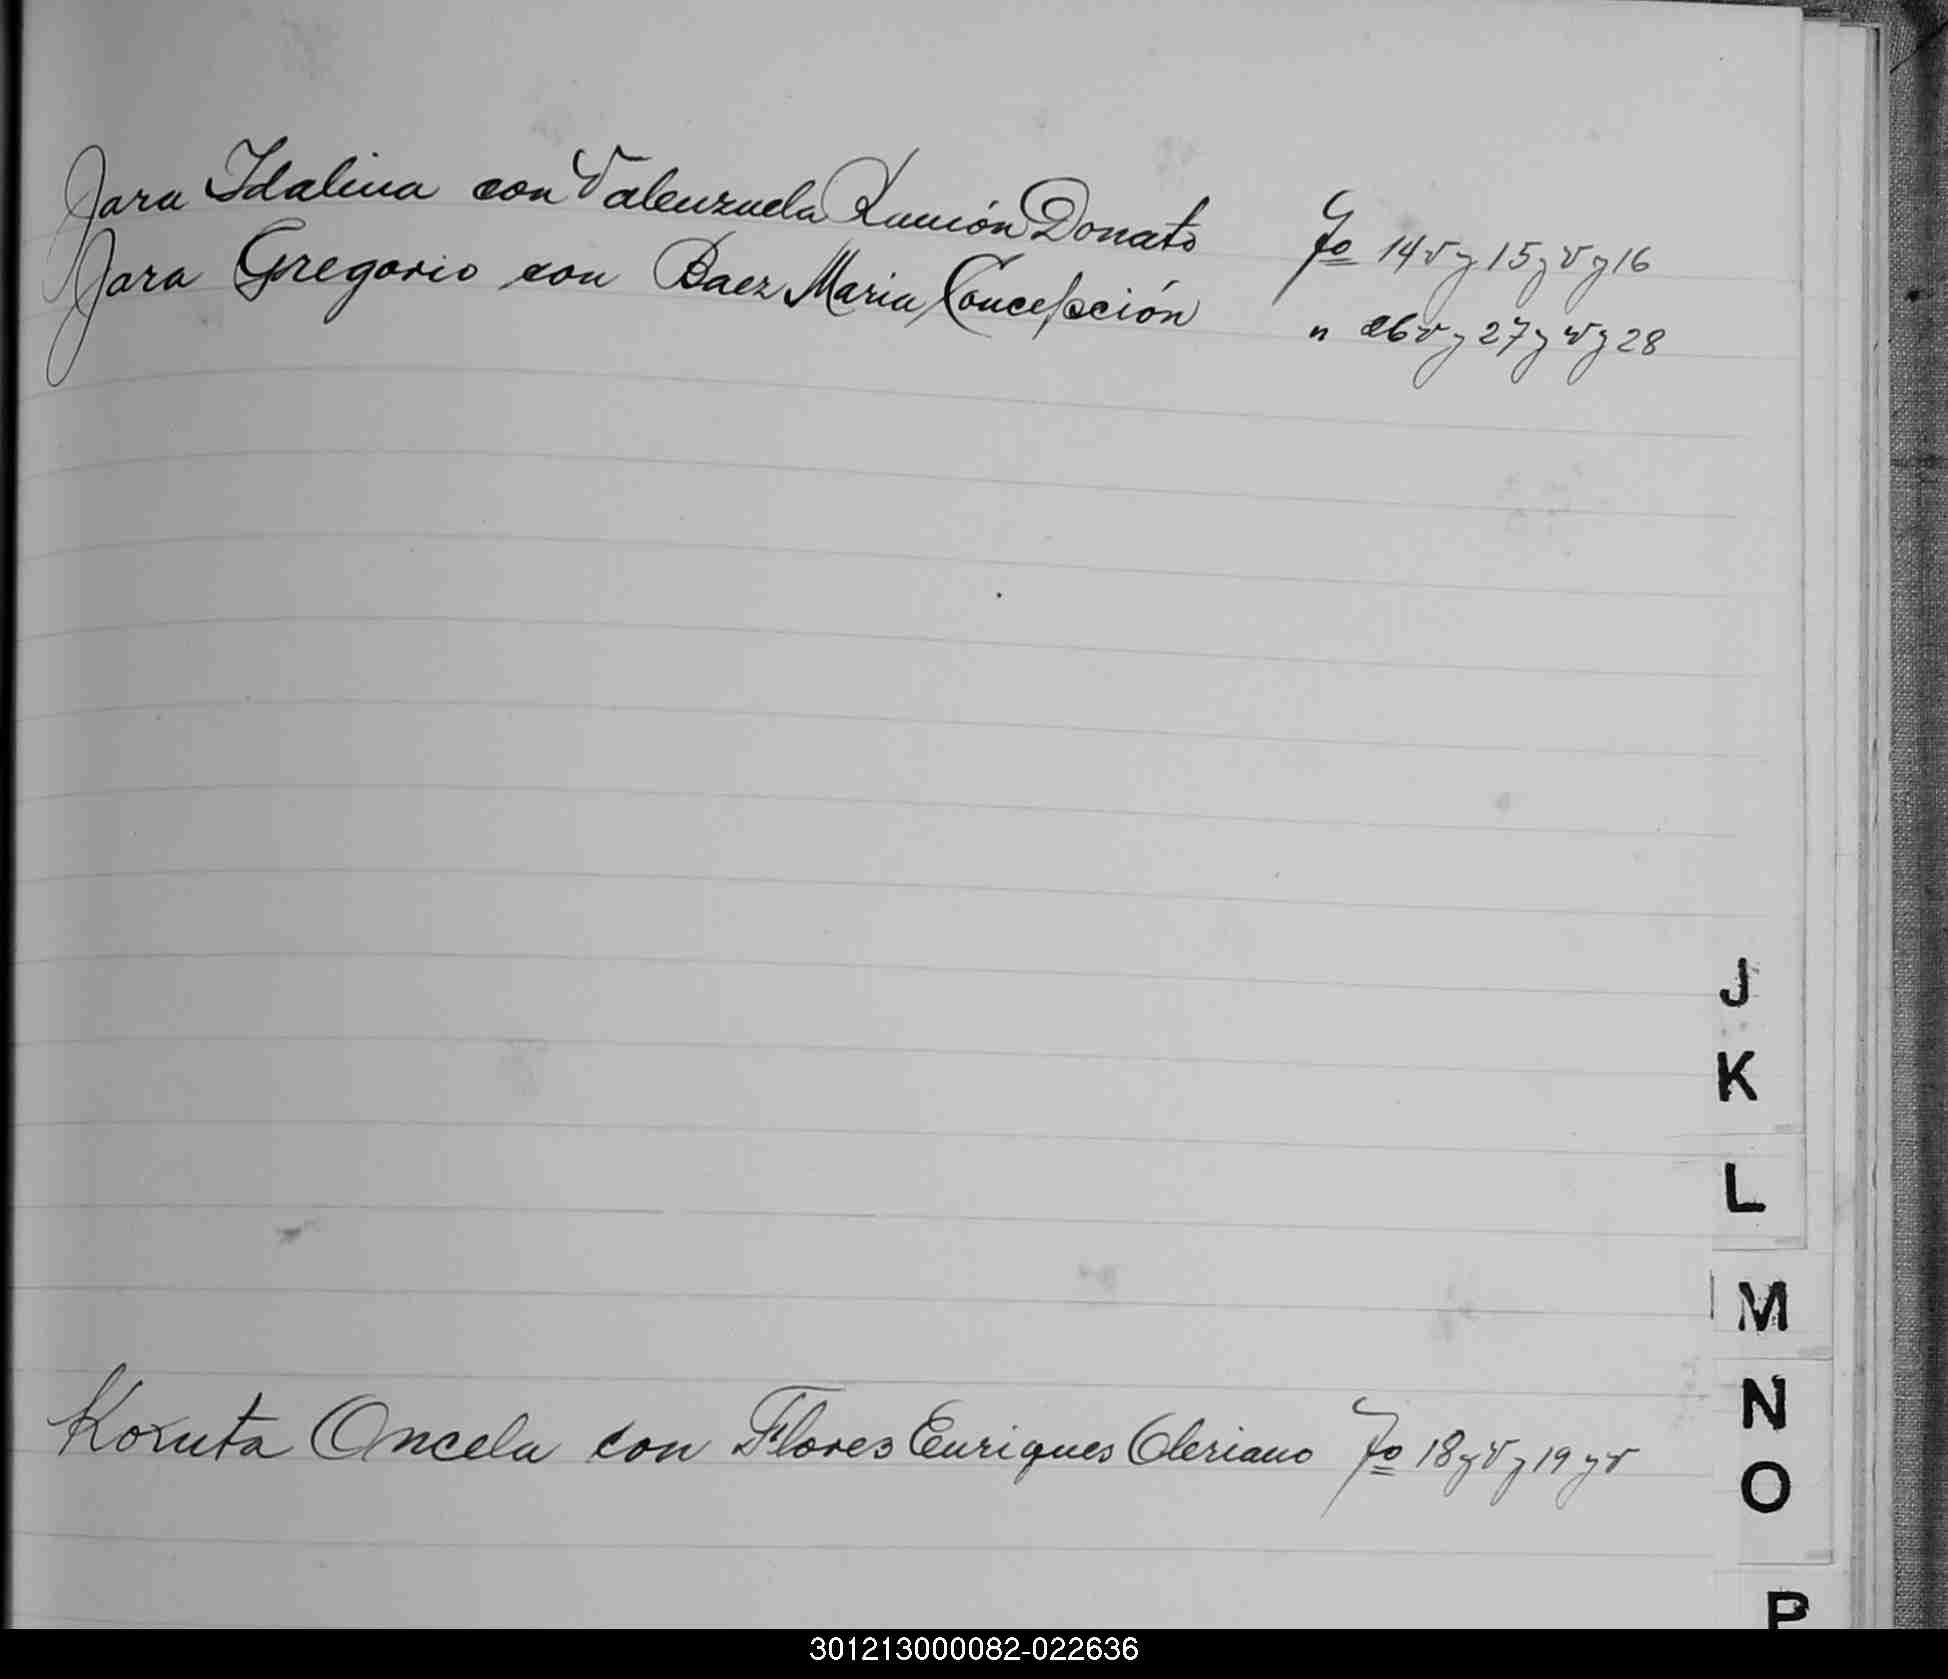 Jara Idalina con Valenzuela Ramón Donato fo 14 v y 15 y v y 16
Jara Gregorio con Baez Maria Concepción " 26 v y 27 y v y 28
J
K
L
M
N
Kokuta Oncela con Flores Enriques Oleriano fo 18 y v y 19 y v
O
P
301213000082-022636